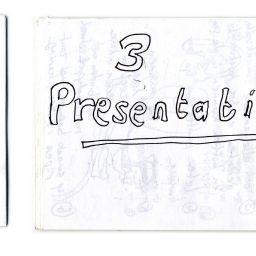 3
Presentati